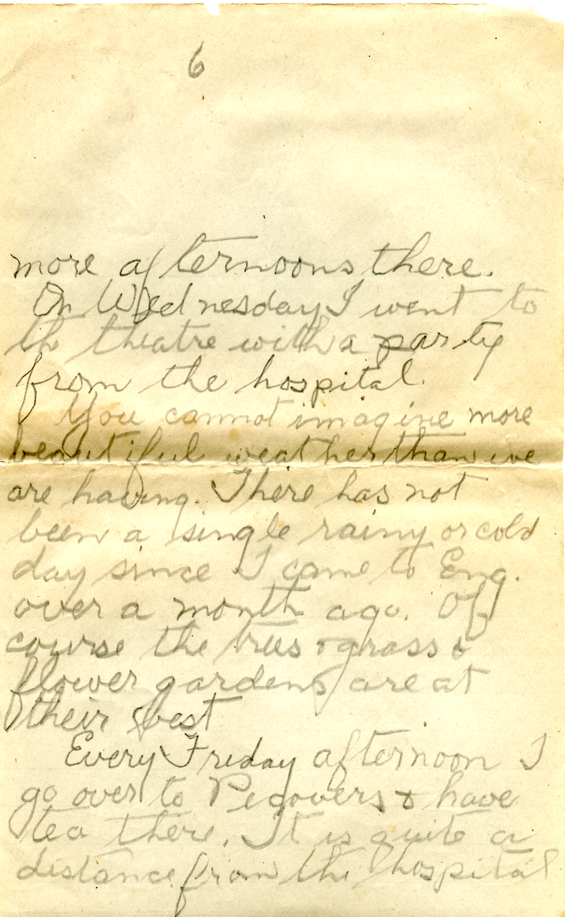 6
more afternoons there.
On Wednesday I went to
th theatre with a party
from the hospital.
You cannot imagine more
beautiful weather than we
are having. There has not
been a single rainy or cold
day since I came to Eng.
over a month ago. Of
course the trees & grass &
flower gardens are at
their best
Every Friday afternoon I
go over to Pecovers & have
tea there. It is quite a
distance from the hospital